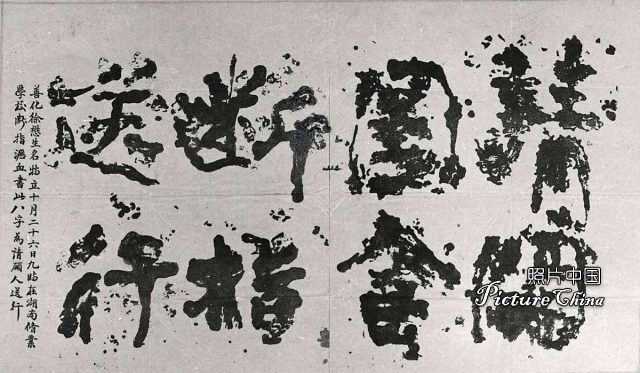 請開
國會
斷指
送行
善化徐懋生名特立十月二十六日九點在湖南脩業
學校斷指瀝血書此八字為請願人送行
照片中国
Picture China